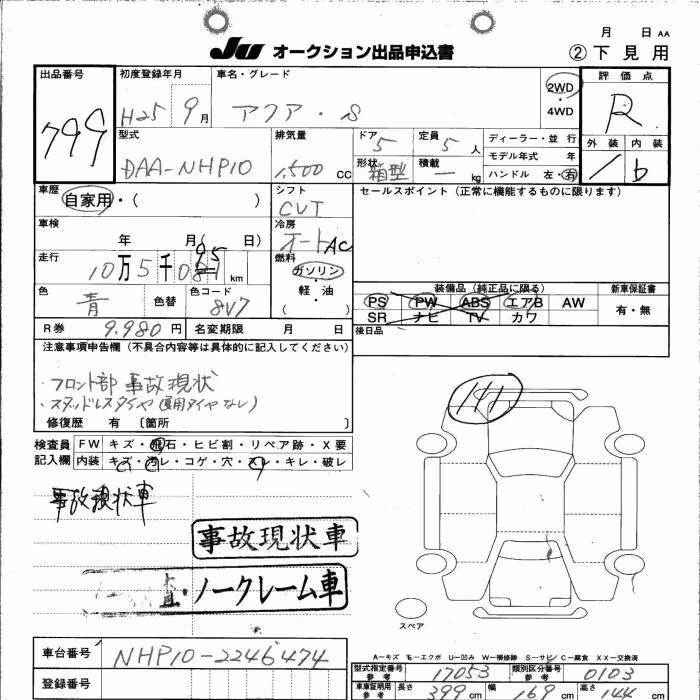 月 日 AA
JU オークション出品申込書 ②下見用
出品番号 799
初度登録年月 H25 9月
車名・グレード アクア・S
2WD・4WD
評価点 R
外装 / 内装 b
型式 DAA-NHP10
排気量 1,500 CC
ドア 5 定員 5人
形状 箱型 積載 — kg
ディーラー・並行
モデル年式 年
ハンドル 左・右
車歴 自家用・( )
シフト CVT
セールスポイント(正常に機能するものに限ります)
車検 年 月( 日)
冷房 オートAC
走行 10万5千 km
燃料 ガソリン・軽・油 ( )
色 青 色替 色コード 8V7
装備品(純正品に限る)
PS PW ABS エアB AW
SR ナビ TV カワ
新車保証書 有・無
R券 9.980円 名変期限 月 日
後日品
注意事項申告欄(不具合内容等は具体的に記入してください)
・フロント部 事故現状
・スタッドレスタイヤ(夏用タイヤなし)
修復歴 有 〔箇所 〕
141
検査員記入欄
FW キズ・飛石・ヒビ割・リペア跡・X要
内装 キズ・汚レ・コゲ・穴・スレ・キレ・破レ
事故現状車
事故現状車
・ノークレーム車
スペア
A−キズ E−エクボ U−凹み W−補修跡 S−サビ/C−腐食 XX−交換済
車台番号 NHP10-2246474
登録番号
型式指定番号 参考 17053 類別区分番号 参考 0103
車庫証明用 参考 長さ 399cm 幅 169cm 高さ 144cm